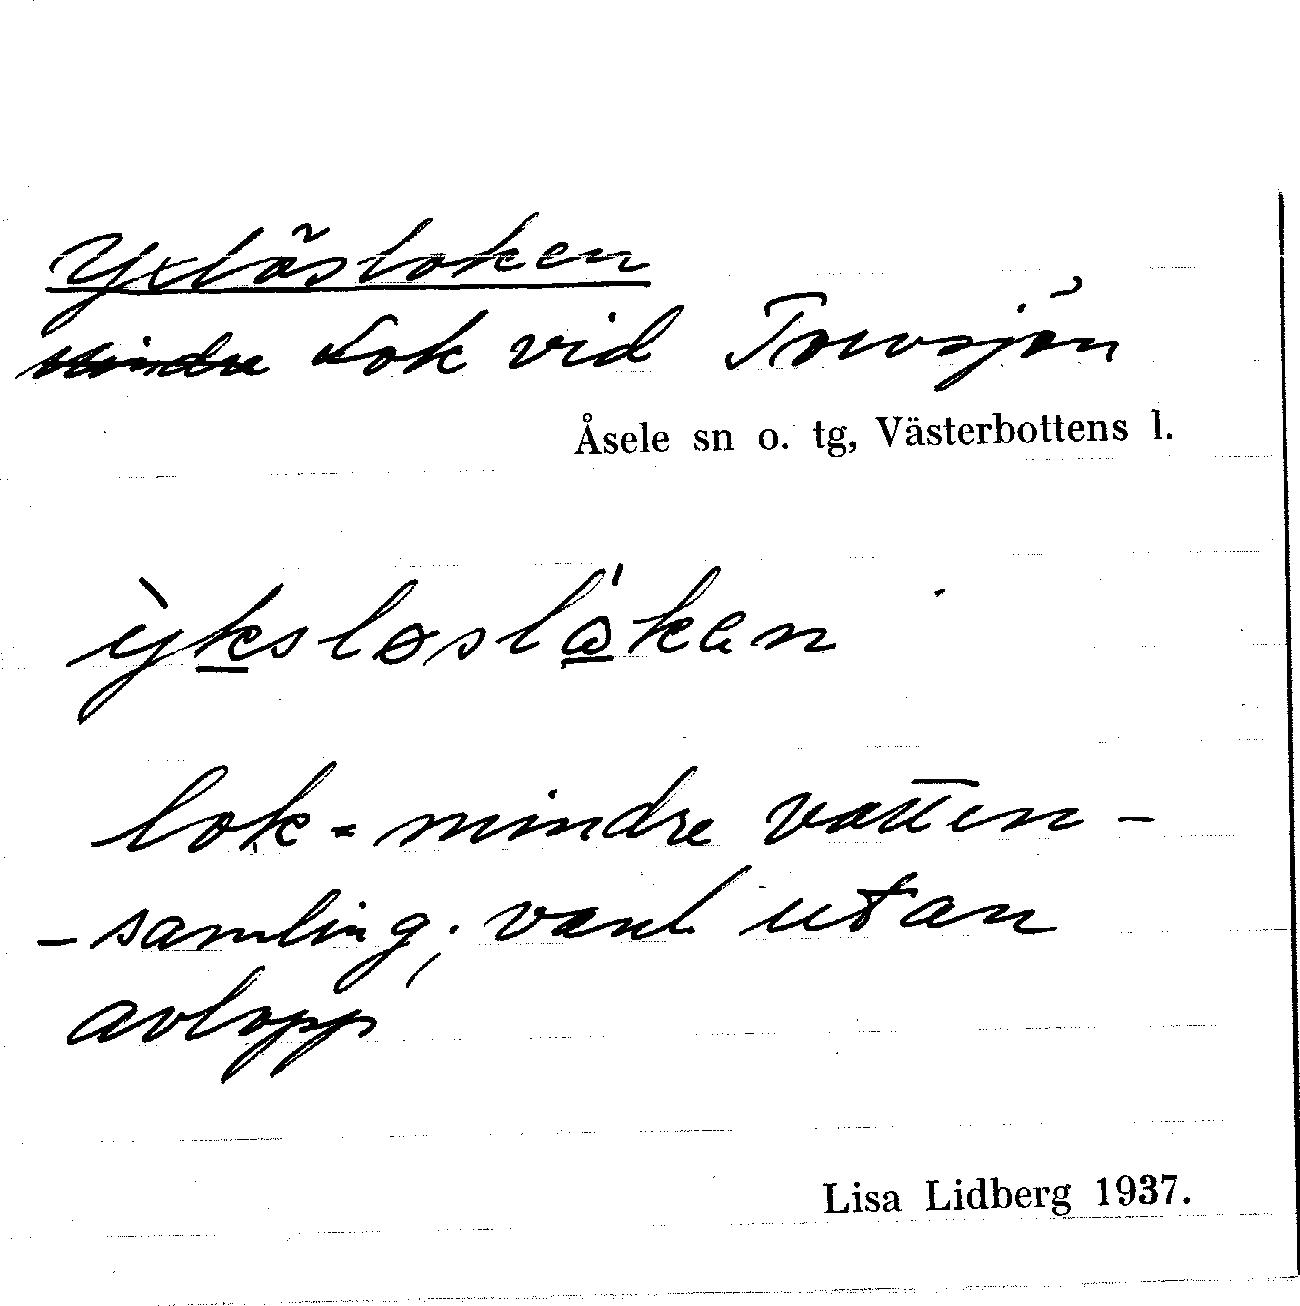 Yxlösloken
~~Mindre~~ Lok vid Torvsjön
Åsele sn o. tg, Västerbottens l.
ỳksløslǻkan
lok = mindre vatten-
-samling; vanl. utan
avlopp
Lisa Lidberg 1937.